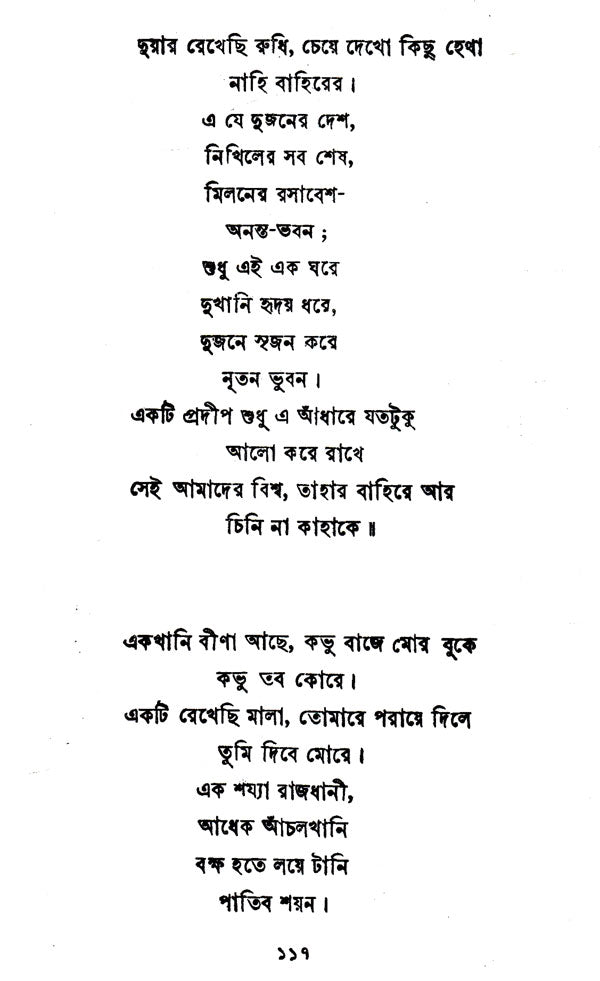 দুয়ার রেখেছি রুধি, চেয়ে দেখো কিছু হেথা
নাহি বাহিরের।
এ যে দুজনের দেশ,
নিখিলের সব শেষ,
মিলনের রসাবেশ-
অনন্ত-ভবন;
শুধু এই এক ঘরে
দুখানি হৃদয় ধরে,
দুজনে সৃজন করে
নূতন ভুবন।
একটি প্রদীপ শুধু এ আঁধারে যতটুকু
আলো করে রাখে
সেই আমাদের বিশ্ব, তাহার বাহিরে আর
চিনি না কাহাকে॥
একখানি বীণা আছে, কভু বাজে মোর বুকে
কভু তব কোরে।
একটি রেখেছি মালা, তোমারে পরায়ে দিলে
তুমি দিবে মোরে।
এক শয্যা রাজধানী,
আধেক আঁচলখানি
বক্ষ হতে লয়ে টানি
পাতিব শয়ন।
১১৭